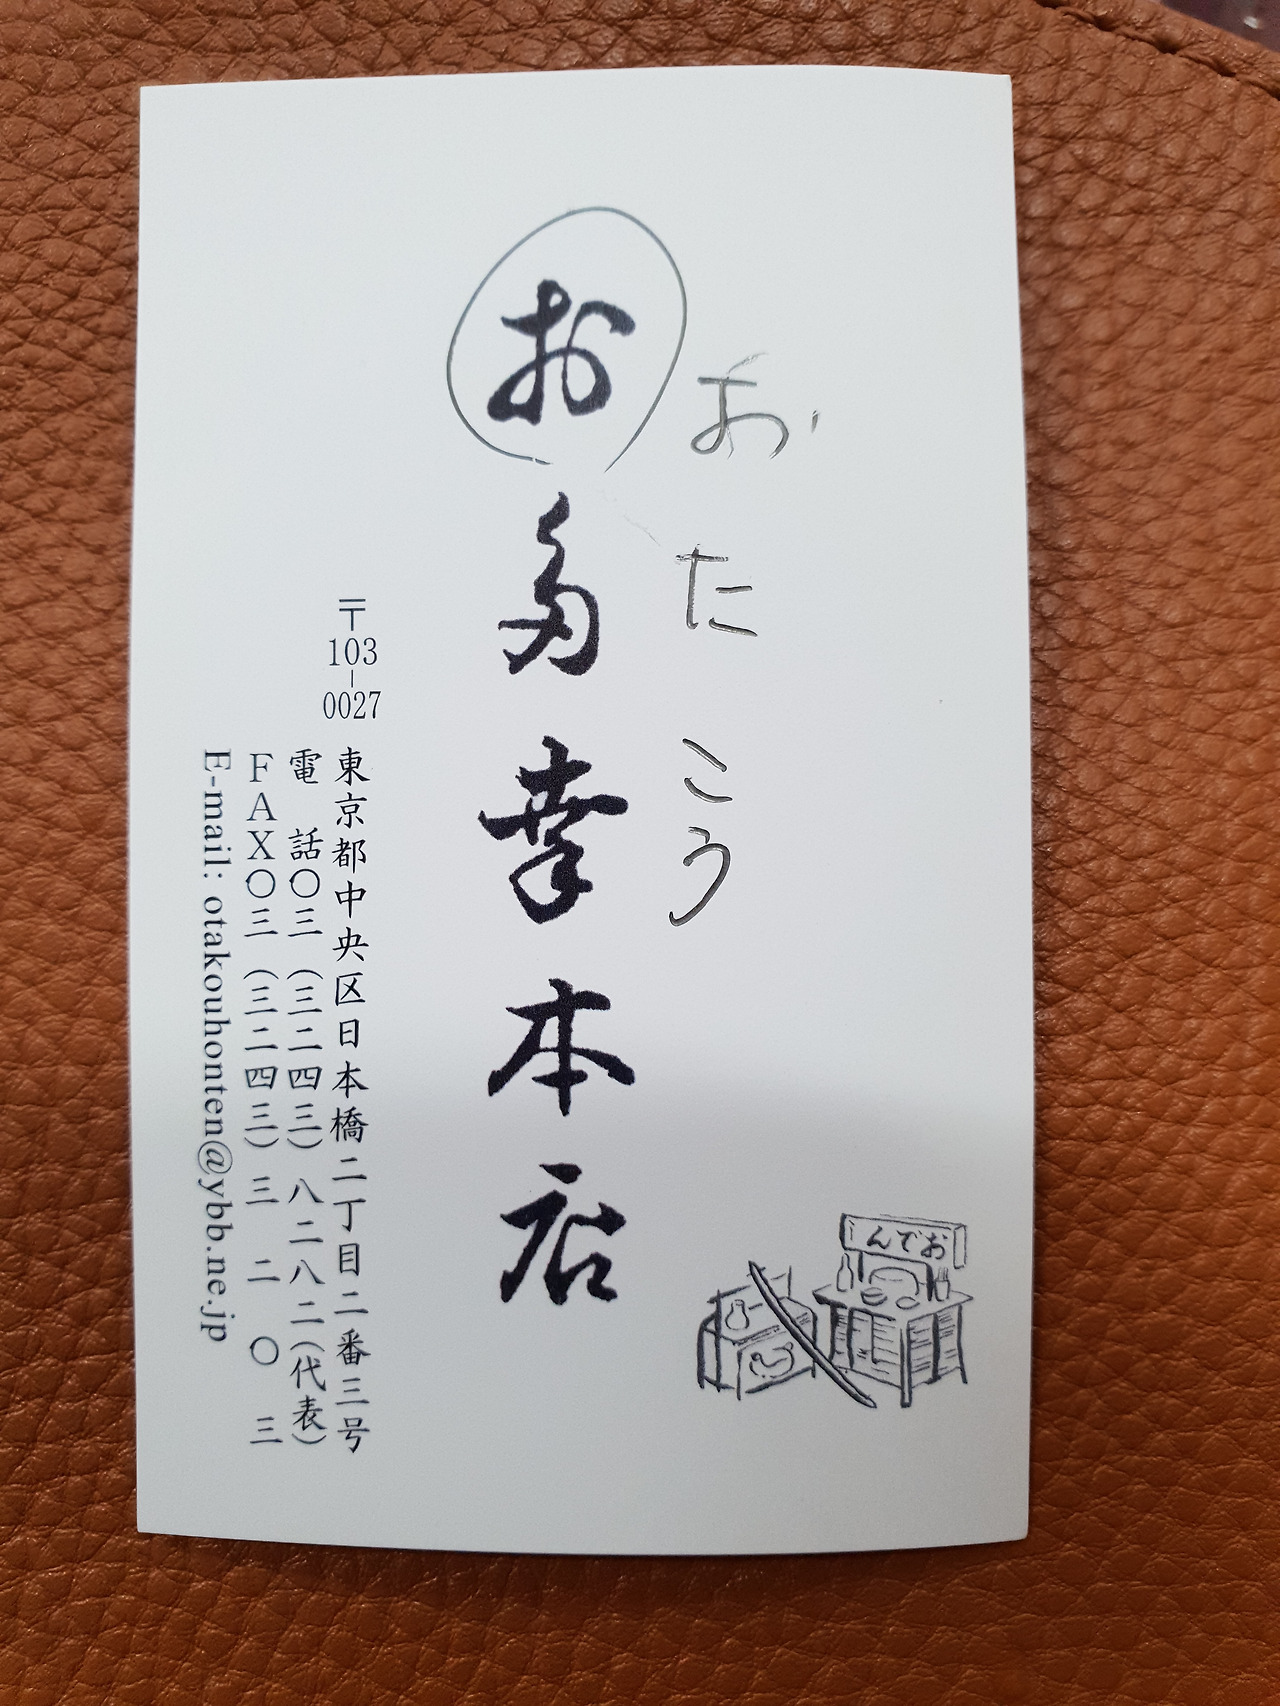 おたこう
お多幸本店
んでお
〒103-0027
東京都中央区日本橋二丁目二番三号
電話〇三(三二四三)八二八二(代表)
FAX〇三(三二四三)三二〇三
E-mail: otakouhonten@ybb.ne.jp